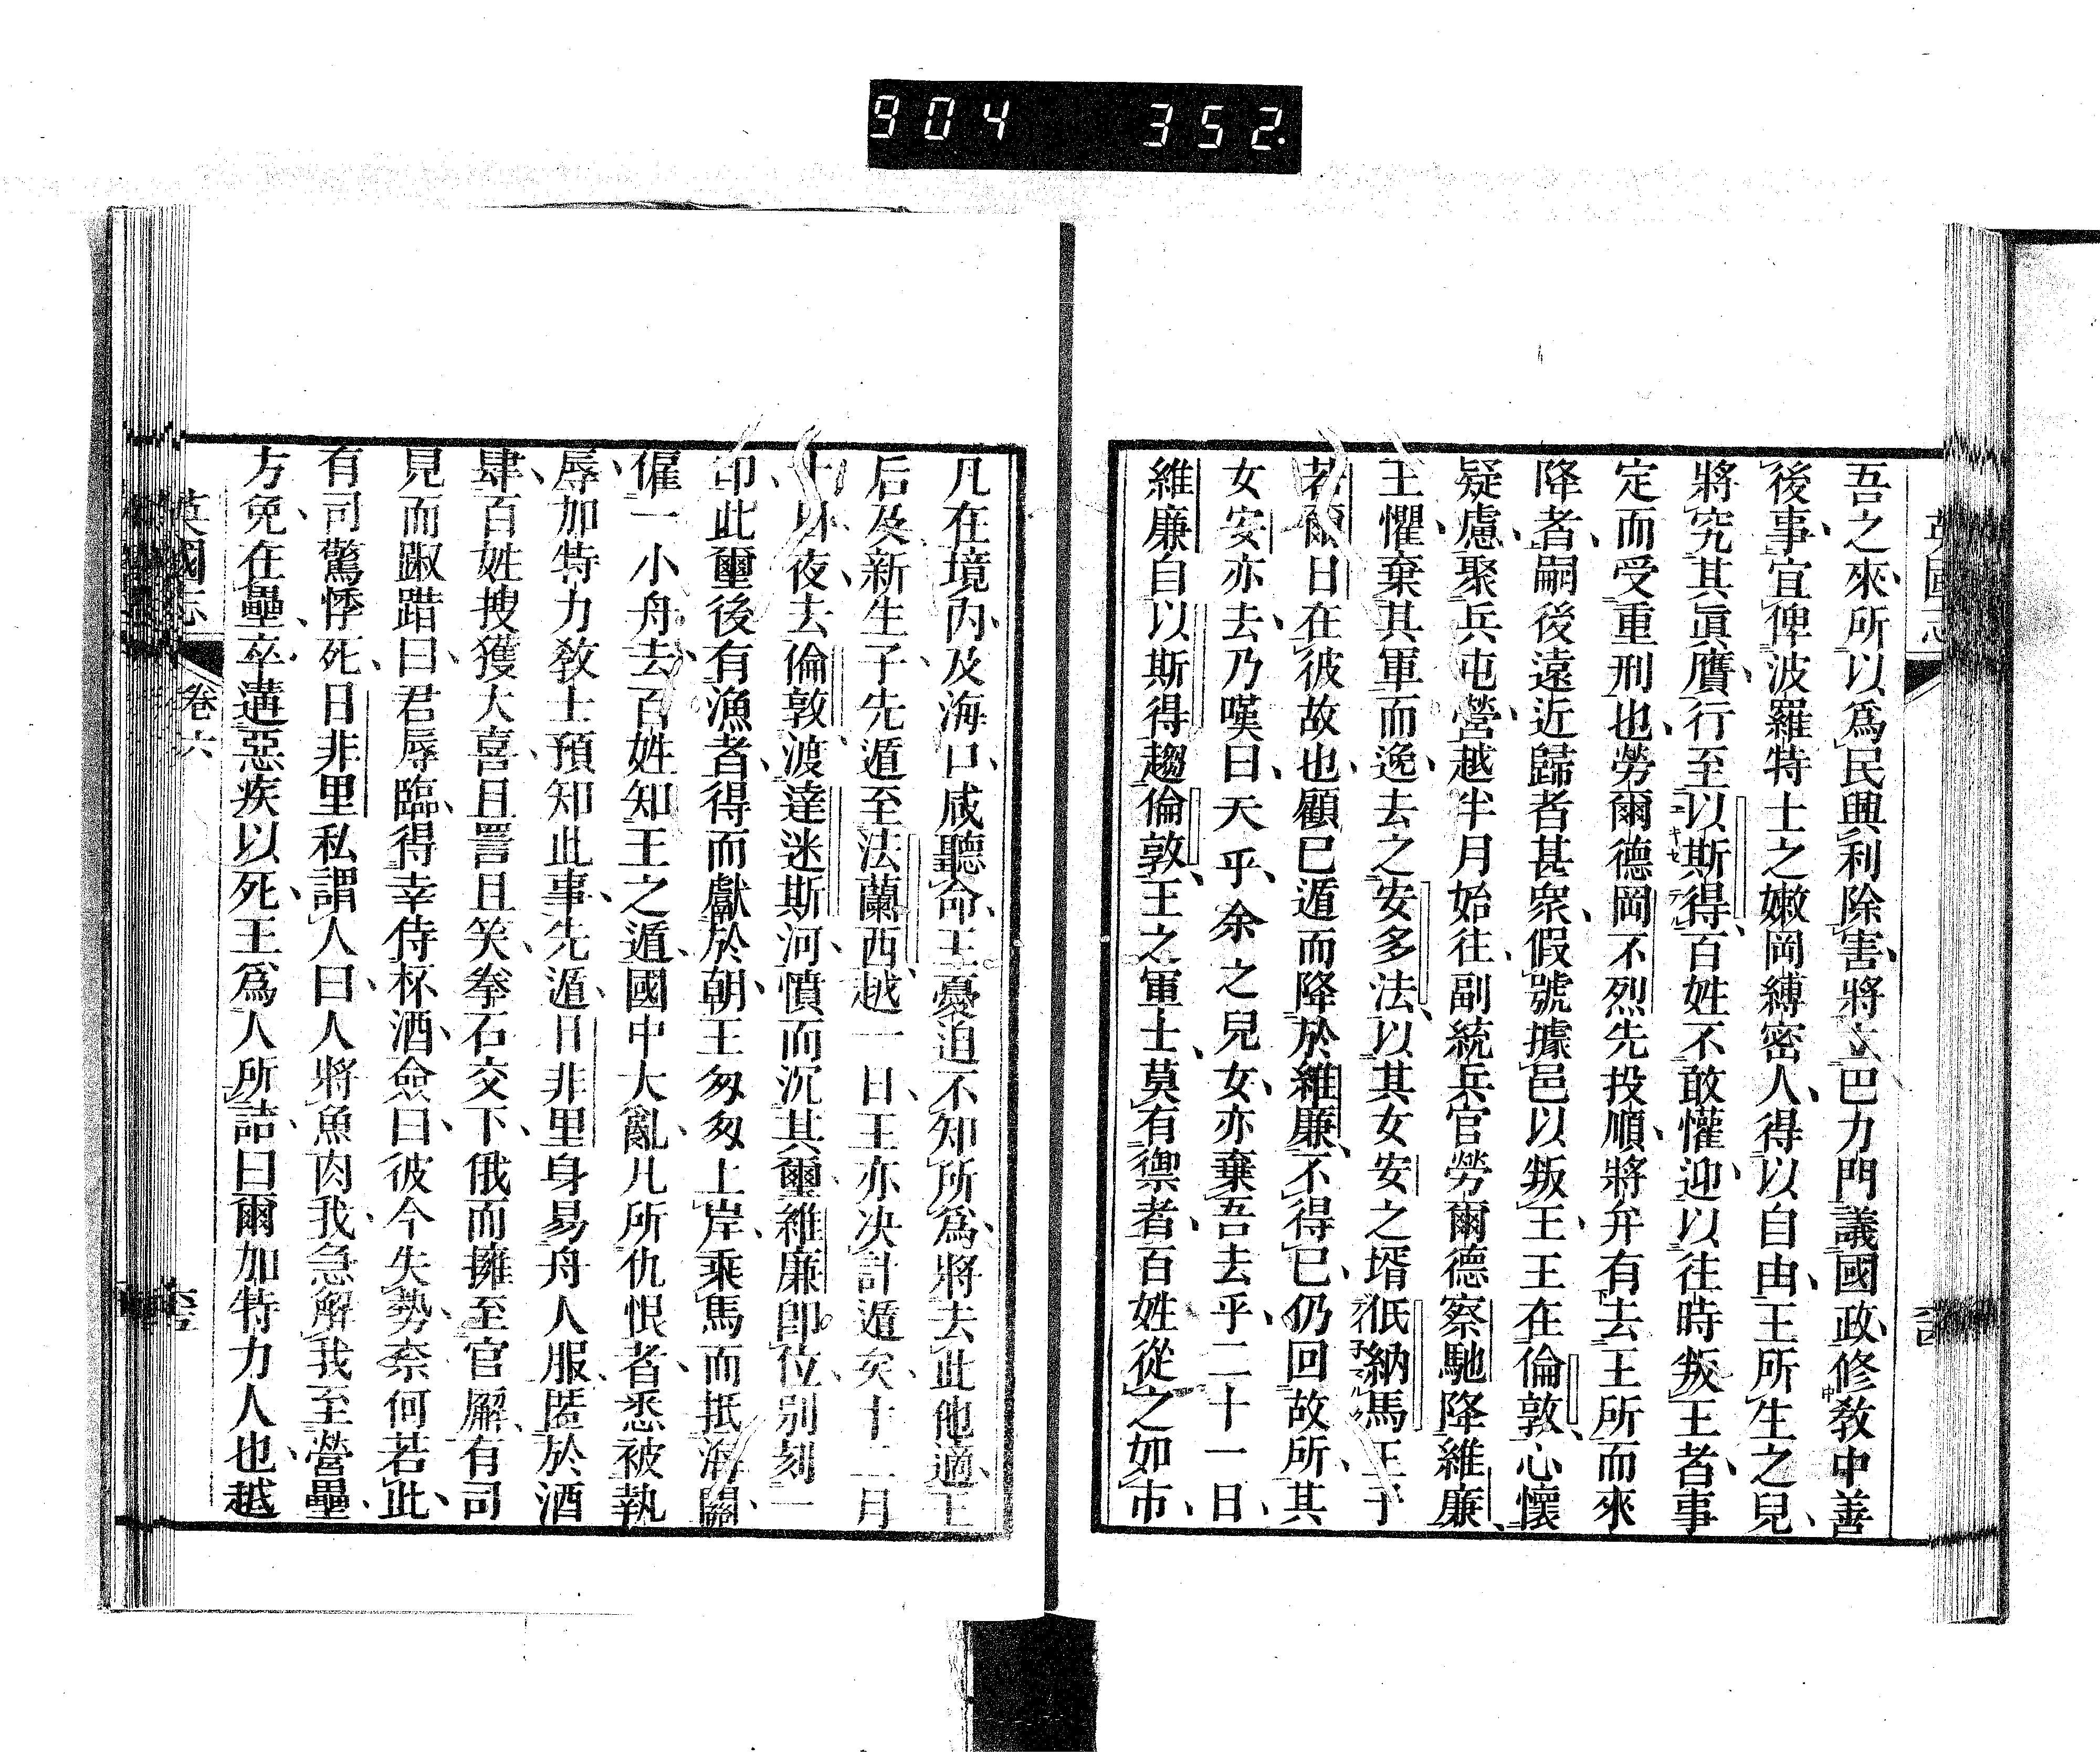 904 352
英國志
吾之來、所以爲民興利除害、將立巴力門議國政、修教中善
後事、宜俾波羅特士之嫩岡縛密人、得以自由、王所生之兒、
將究其眞贋、行至以斯得、百姓不敢懽迎、以往時叛王者、事
定而受重刑也、勞爾德岡不烈先投順、將弁有去王所而來
降者、嗣後遠近歸者甚衆、假號據邑以叛王、王在倫敦、心懷
疑慮、聚兵屯營、越半月始往、副統兵官勞爾德察馳降維廉、
王懼、棄其軍而逸、去之安多法、以其女安之壻低納馬王子
若爾日在彼故也、顧已遁而降於維廉、不得已、仍回故所、其
女安亦去、乃嘆曰、天乎、余之兒女、亦棄吾去乎、二十一日、
維廉自以斯得趨倫敦、王之軍士、莫有禦者、百姓從之如市、
凡在境內、及海口、咸聽命、王憂迫不知所爲、將去此他適、王
后及新生子、先遁至法蘭西、越一日、王亦決計遁矣、十二月
十以夜、去倫敦、渡達迷斯河、憤而沉其璽、維廉卽位、別刻一
印、此璽後有漁者、得而獻於朝、王匆匆上岸、乘馬而抵海關、
僱一小舟去、百姓知王之遁、國中大亂、凡所仇恨者、悉被執
辱、加特力敎士預知此事、先遁、日非里身易舟人服、匿於酒
肆、百姓搜獲大喜、且詈且笑、拳石交下、俄而擁至官廨、有司
見而踧踖曰、君辱臨、得幸侍杯酒、僉曰、彼今失勢、奈何若此、
有司驚悸死、日非里私謂人曰、人將魚肉我、急解我至營壘、
方免、在壘、卒遘惡疾以死、王爲人所詰曰、爾加特力人也、越
英國志
卷六